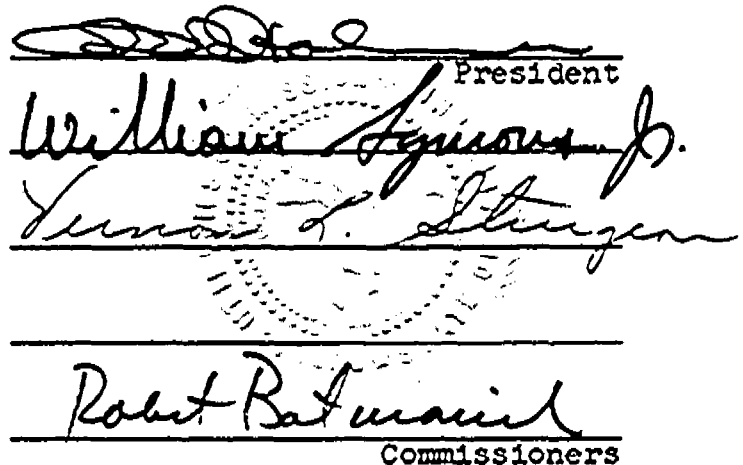 President
William Symons Jr.
Vernon L. Sturgeon
Robert Batinovich
Commissioners